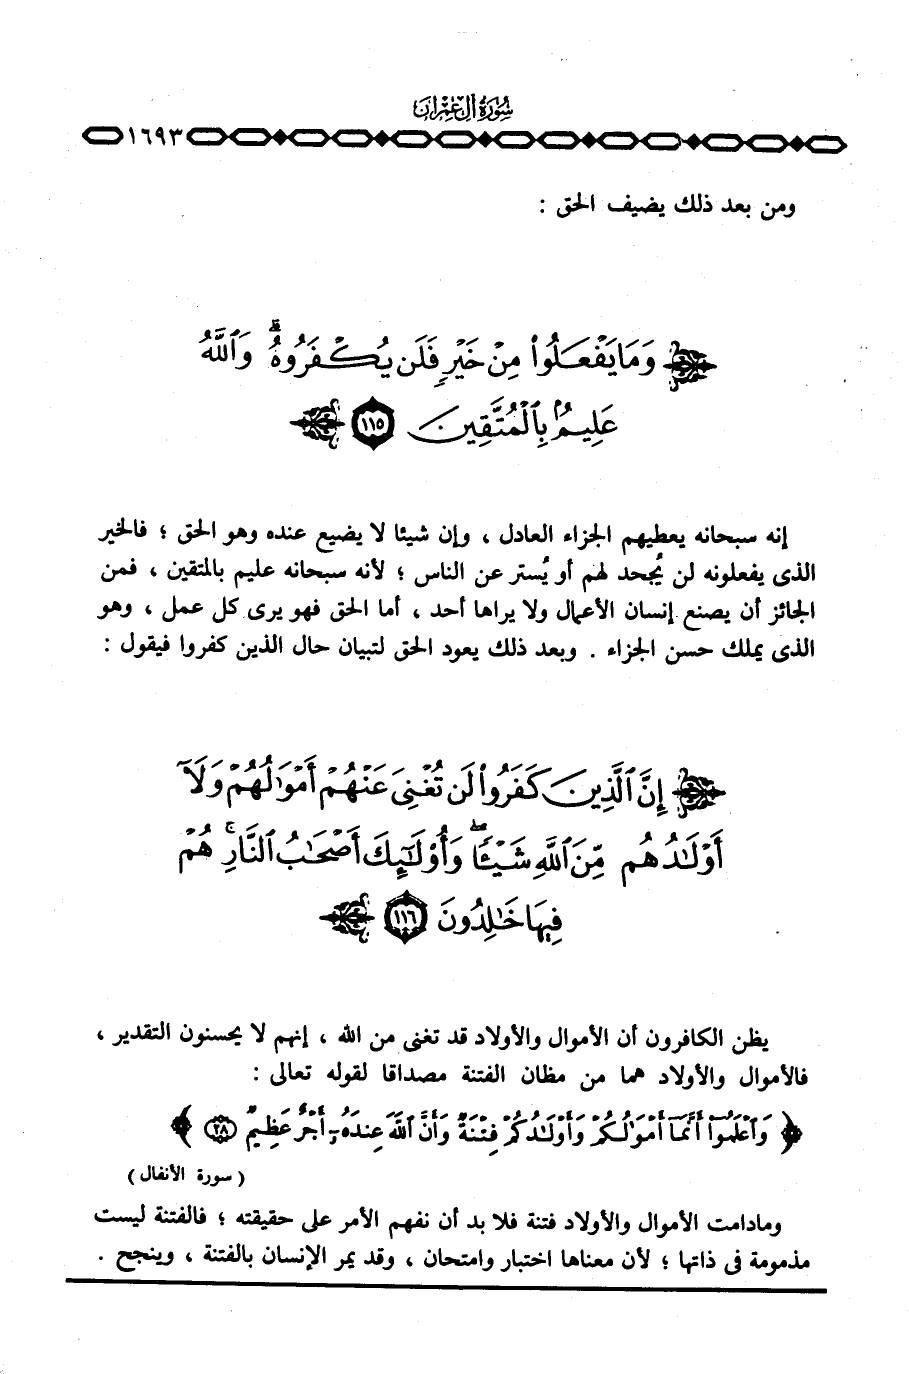 سُورَةُ آلِ عِمْرَانَ
١٦٩٣
ومن بعد ذلك يضيف الحق :
وَمَا يَفْعَلُوا۟ مِنْ خَيْرٍ فَلَن يُكْفَرُوهُ ۗ وَٱللَّهُ
عَلِيمٌۢ بِٱلْمُتَّقِينَ ١١٥
إنه سبحانه يعطيهم الجزاء العادل ، وإن شيئا لا يضيع عنده وهو الحق ؛ فالخير
الذى يفعلونه لن يُجحد لهم أو يُستر عن الناس ؛ لأنه سبحانه عليم بالمتقين ، فمن
الجائز أن يصنع إنسان الأعمال ولا يراها أحد ، أما الحق فهو يرى كل عمل ، وهو
الذى يملك حسن الجزاء . وبعد ذلك يعود الحق لتبيان حال الذين كفروا فيقول :
إِنَّ ٱلَّذِينَ كَفَرُوا۟ لَن تُغْنِىَ عَنْهُمْ أَمْوَٰلُهُمْ وَلَآ
أَوْلَـٰدُهُم مِّنَ ٱللَّهِ شَيْـًٔا ۖ وَأُو۟لَـٰٓئِكَ أَصْحَـٰبُ ٱلنَّارِ ۚ هُمْ
فِيهَا خَـٰلِدُونَ ١١٦
يظن الكافرون أن الأموال والأولاد قد تغنى من الله ، إنهم لا يحسنون التقدير ،
فالأموال والأولاد هما من مظان الفتنة مصداقا لقوله تعالى :
﴿ وَٱعْلَمُوٓا۟ أَنَّمَآ أَمْوَٰلُكُمْ وَأَوْلَـٰدُكُمْ فِتْنَةٌ وَأَنَّ ٱللَّهَ عِندَهُۥٓ أَجْرٌ عَظِيمٌ ٢٨ ﴾
( سورة الأنفال )
ومادامت الأموال والأولاد فتنة فلا بد أن نفهم الأمر على حقيقته ؛ فالفتنة ليست
مذمومة فى ذاتها ؛ لأن معناها اختبار وامتحان ، وقد يمر الإنسان بالفتنة ، وينجح .